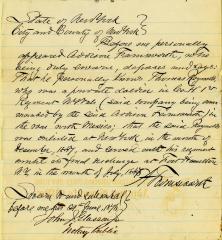 State of New York
City and County of New York
Before me personally
appeared Addison Farnsworth, who
being duly sworn, deposes and says:
That he personally knew Thomas
who was a private in Co. 1st
Regiment N.Y. Vols (said company being com-
manded by the said Addison Farnsworth) in
the war with Mexico; that the said
was enlisted in New York, in the month of
December, 1847, and served with his regiment
until its final discharge at Fort Hamilton
in the month of July, 1848.
A Farnsworth
Sworn to and subscribed
before me this June
John
Notary Public